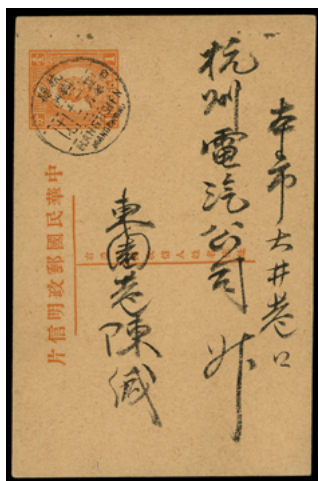 本市大井巷口
杭州電汽公司 升
東園巷陳緘
中華民國郵政明信片
1
HANGCHOW